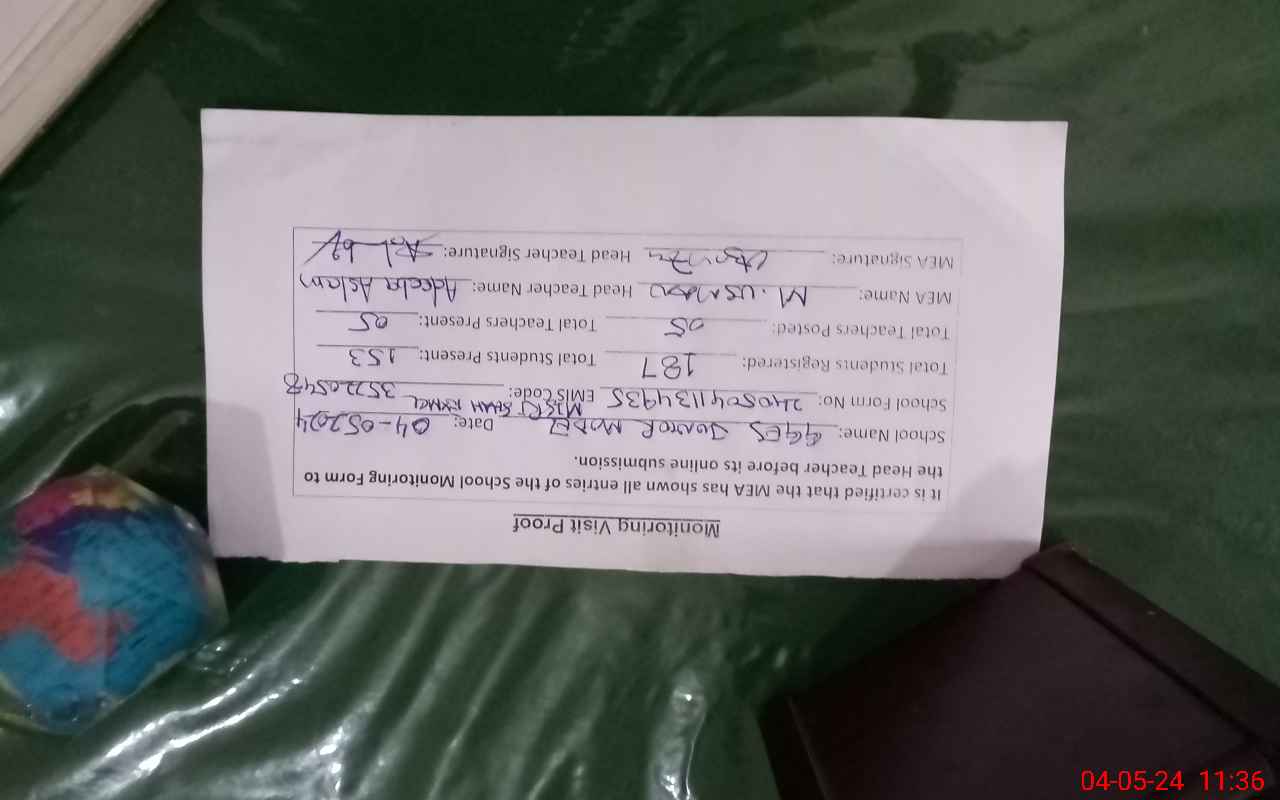 Monitoring Visit Proof
It is certified that the MEA has shown all entries of the School Monitoring Form to
the Head Teacher before its online submission.
School Name: GGES JUNIOR MODEL Date: 04-052024
MISRI SHAH
School Form No: 2405041134935 EMIS Code: 35220548
Total Students Registered: 187 Total Students Present: 153
Total Teachers Posted: 05 Total Teachers Present: 05
MEA Name: M. USMAN Head Teacher Name: Adeeba Aslam
MEA Signature: Head Teacher Signature:
04-05-24 11:36